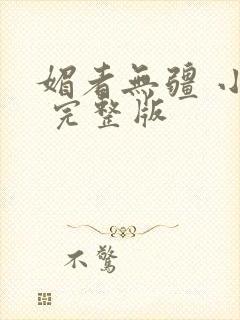 媚者無疆 小
完整版
不驚